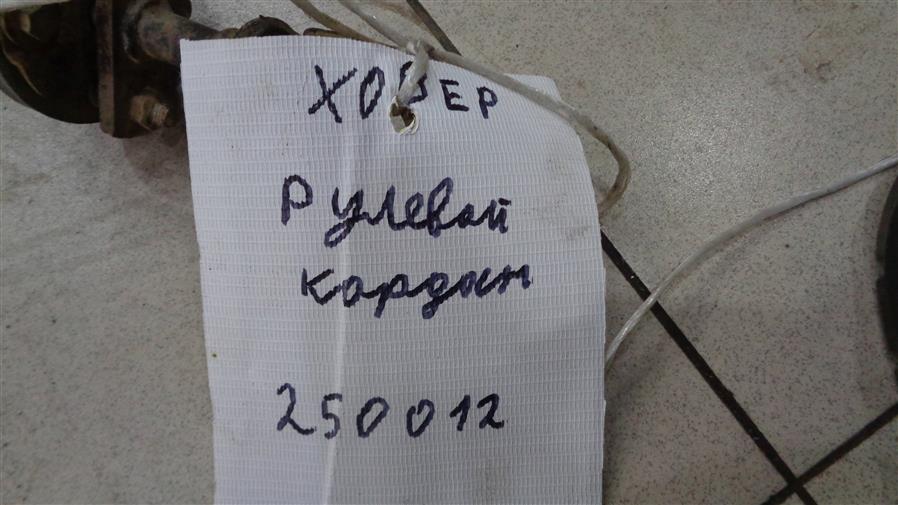 ХОВЕР
Рулевой
кардан
250012